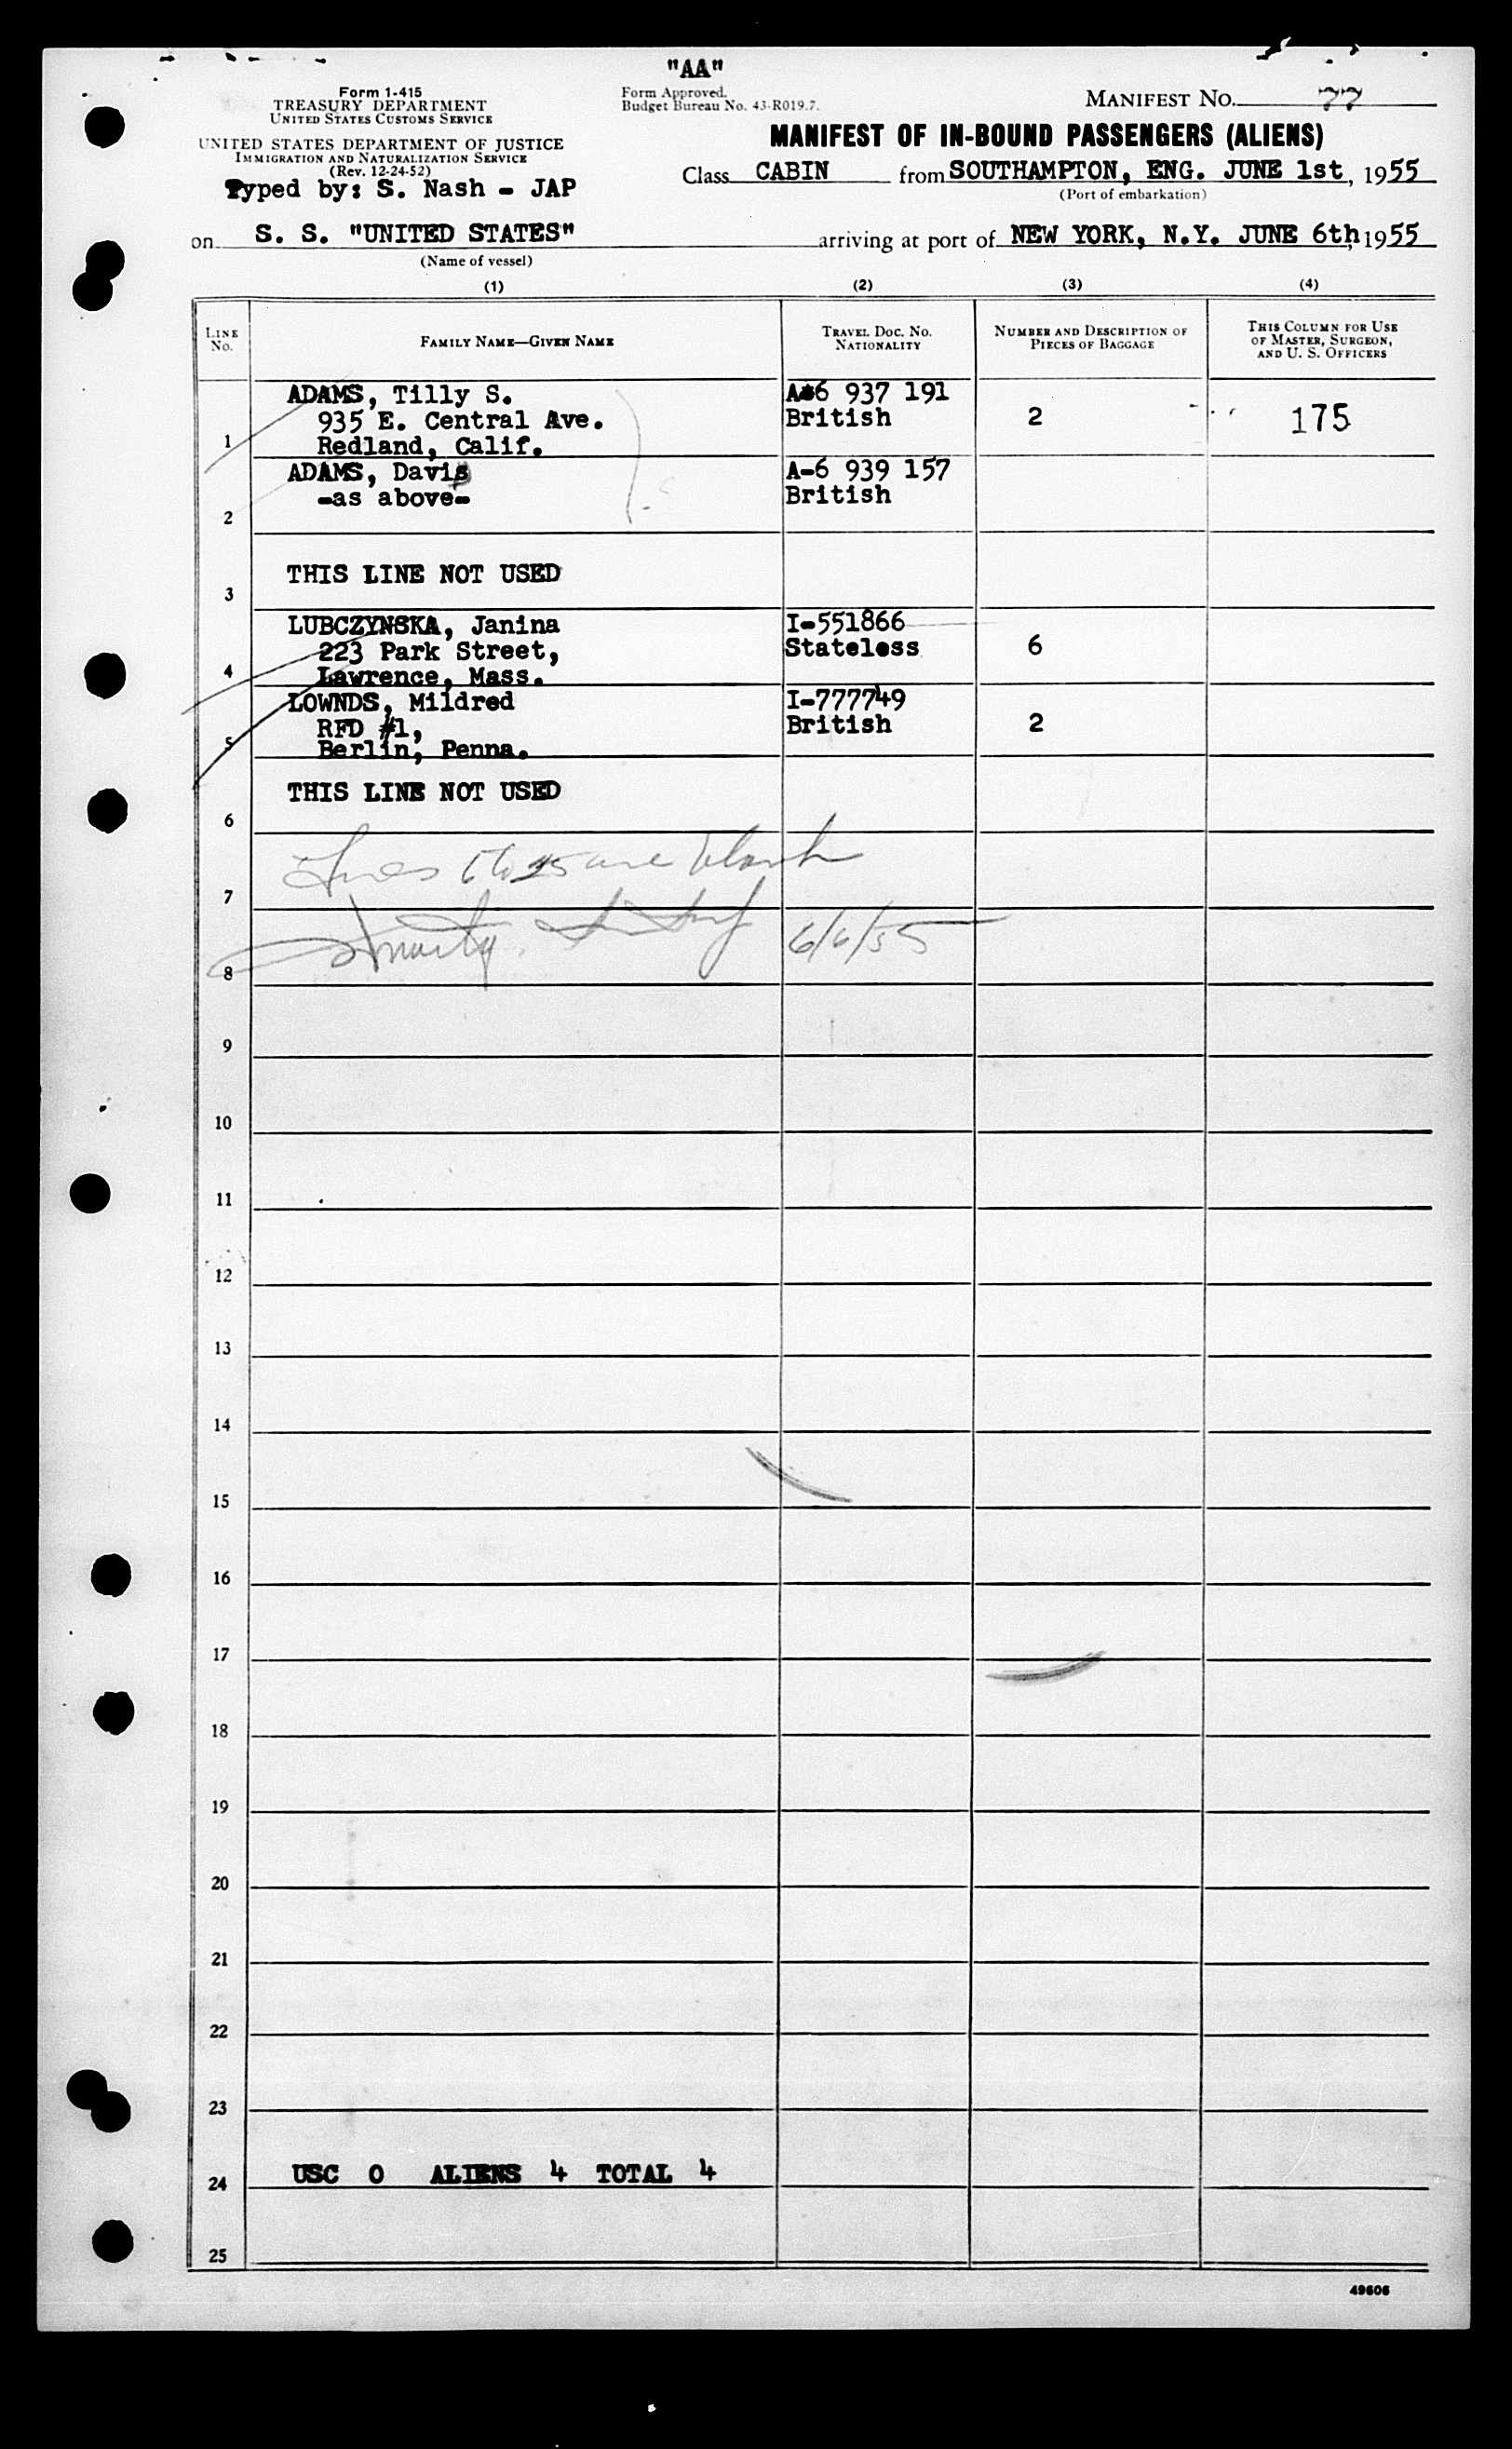 "AA"
Form 1-415
TREASURY DEPARTMENT
UNITED STATES CUSTOMS SERVICE
Form Approved.
Budget Bureau No. 43-R019.7.
MANIFEST NO. 77
UNITED STATES DEPARTMENT OF JUSTICE
IMMIGRATION AND NATURALIZATION SERVICE
(Rev. 12-24-52)
MANIFEST OF IN-BOUND PASSENGERS (ALIENS)
Typed by: S. Nash - JAP
Class CABIN from SOUTHAMPTON, ENG. JUNE 1st, 1955
(Port of embarkation)
on S. S. "UNITED STATES" arriving at port of NEW YORK, N.Y. JUNE 6th, 1955
(Name of vessel)
(1) (2) (3) (4)
LINE NO.
FAMILY NAME—GIVEN NAME
TRAVEL DOC. NO. NATIONALITY
NUMBER AND DESCRIPTION OF PIECES OF BAGGAGE
THIS COLUMN FOR USE OF MASTER, SURGEON, AND U. S. OFFICERS
ADAMS, Tilly S. A-6 937 191
935 E. Central Ave. British 2 175
1 Redland, Calif.
ADAMS, Davis A-6 939 157
-as above- British
2
THIS LINE NOT USED
3
LUBCZYNSKA, Janina I-551866
223 Park Street, Stateless 6
4 Lawrence, Mass.
LOWNDS, Mildred I-777749
RFD #1, British 2
5 Berlin, Penna.
THIS LINE NOT USED
6
Lines 6 to 25 are blank
7
6/6/55
8
9
10
11
12
13
14
15
16
17
18
19
20
21
22
23
24 USC 0 ALIENS 4 TOTAL 4
25
49606